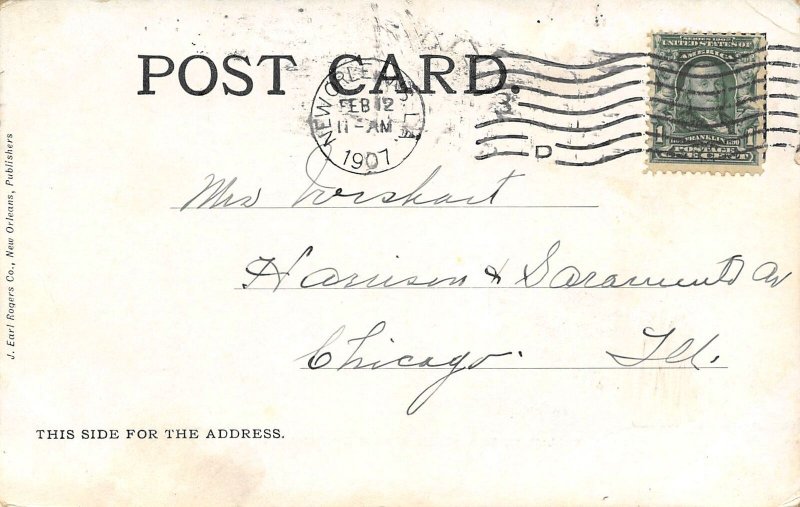 POST CARD.
NEW ORLEANS, LA.
FEB 12
11-AM
1907
3
D
SERIES 1902
UNITED STATES OF
AMERICA
1
FRANKLIN
POSTAGE
ONE CENT
J. Earl Rogers Co., New Orleans, Publishers
Mrs
Harrison & Sacramento Av
Chicago. Ill.
THIS SIDE FOR THE ADDRESS.